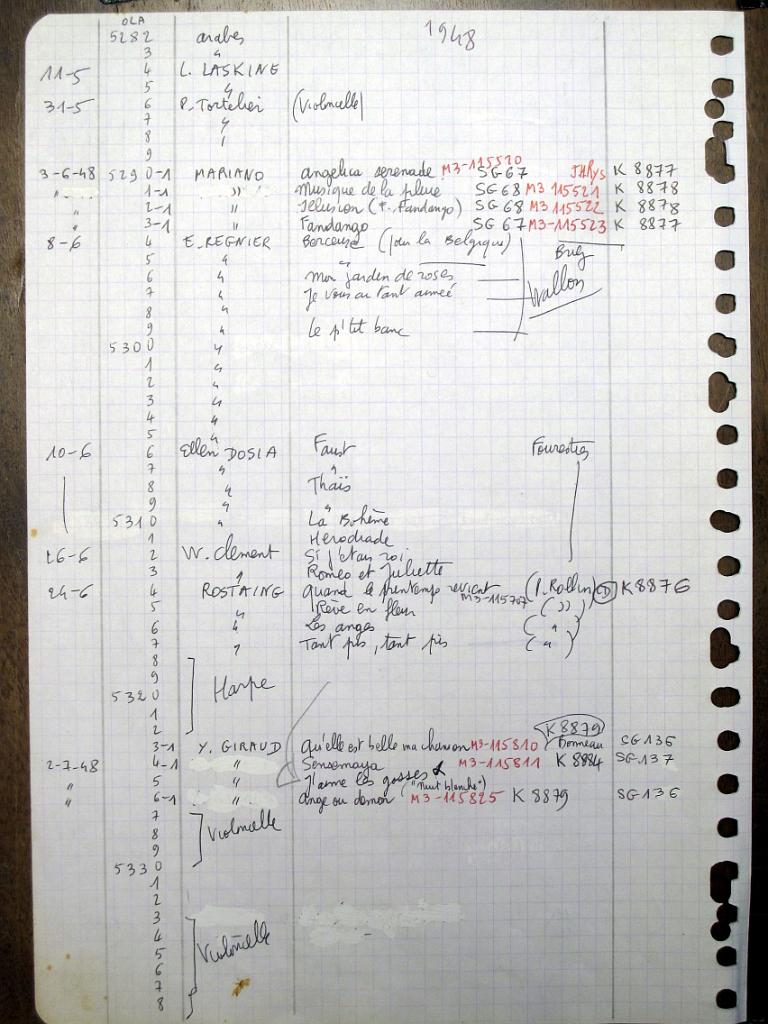 OLA
1948
5282 arabes
3 "
11-5 4 L. LASKINE
5 "
31-5 6 P. Tortelier (Violoncelle)
7 "
8 "
9
3-6-48 5290-1 MARIANO angelica serenade M3-115520 SG 67 K 8877
" 1-1 " Musique de la pluie SG 68 M3 115521 K 8878
" 2-1 " Illusion (F. Fandango) SG 68 M3 115522 K 8878
" 3-1 " Fandango SG 67 M3-115523 K 8877
8-6 4 E. REGNIER Berceuse (pour la Belgique)
5 " "
6 " Mon jardin de roses
7 " Je vous ai tant aimée Wallon
8 "
9 " Le p'tit banc
5300 "
1 "
2 "
3 "
4 "
5 "
10-6 6 Ellen DOSIA Faust Fourestier
7 " "
8 " Thaïs
9 " "
5310 " La Bohème
1 Hérodiade
26-6 2 W. Clement Si j'étais roi
3 " Romeo et Juliette
24-6 4 ROSTAING quand le printemps revient (P. Rollin) D K 8876
5 " Rêve en fleur M3-115707 (")
6 " Les anges (")
7 " Tant pis, tant pis (")
8
9
5320 Harpe
1
2
K 8879
3-1 Y. GIRAUD Qu'elle est belle ma chanson M3-115810 Bonneau SG 136
2-7-48 4-1 " Sensemaya M3-115811 K 8884 SG-137
" 5 " J'aime les gosses
" 6-1 " Ange ou démon ("Nuit blanche") M3-115825 K 8879 SG 136
7
8 Violoncelle
9
5330
1
2
3
4
5 Violoncelle
6
7
8